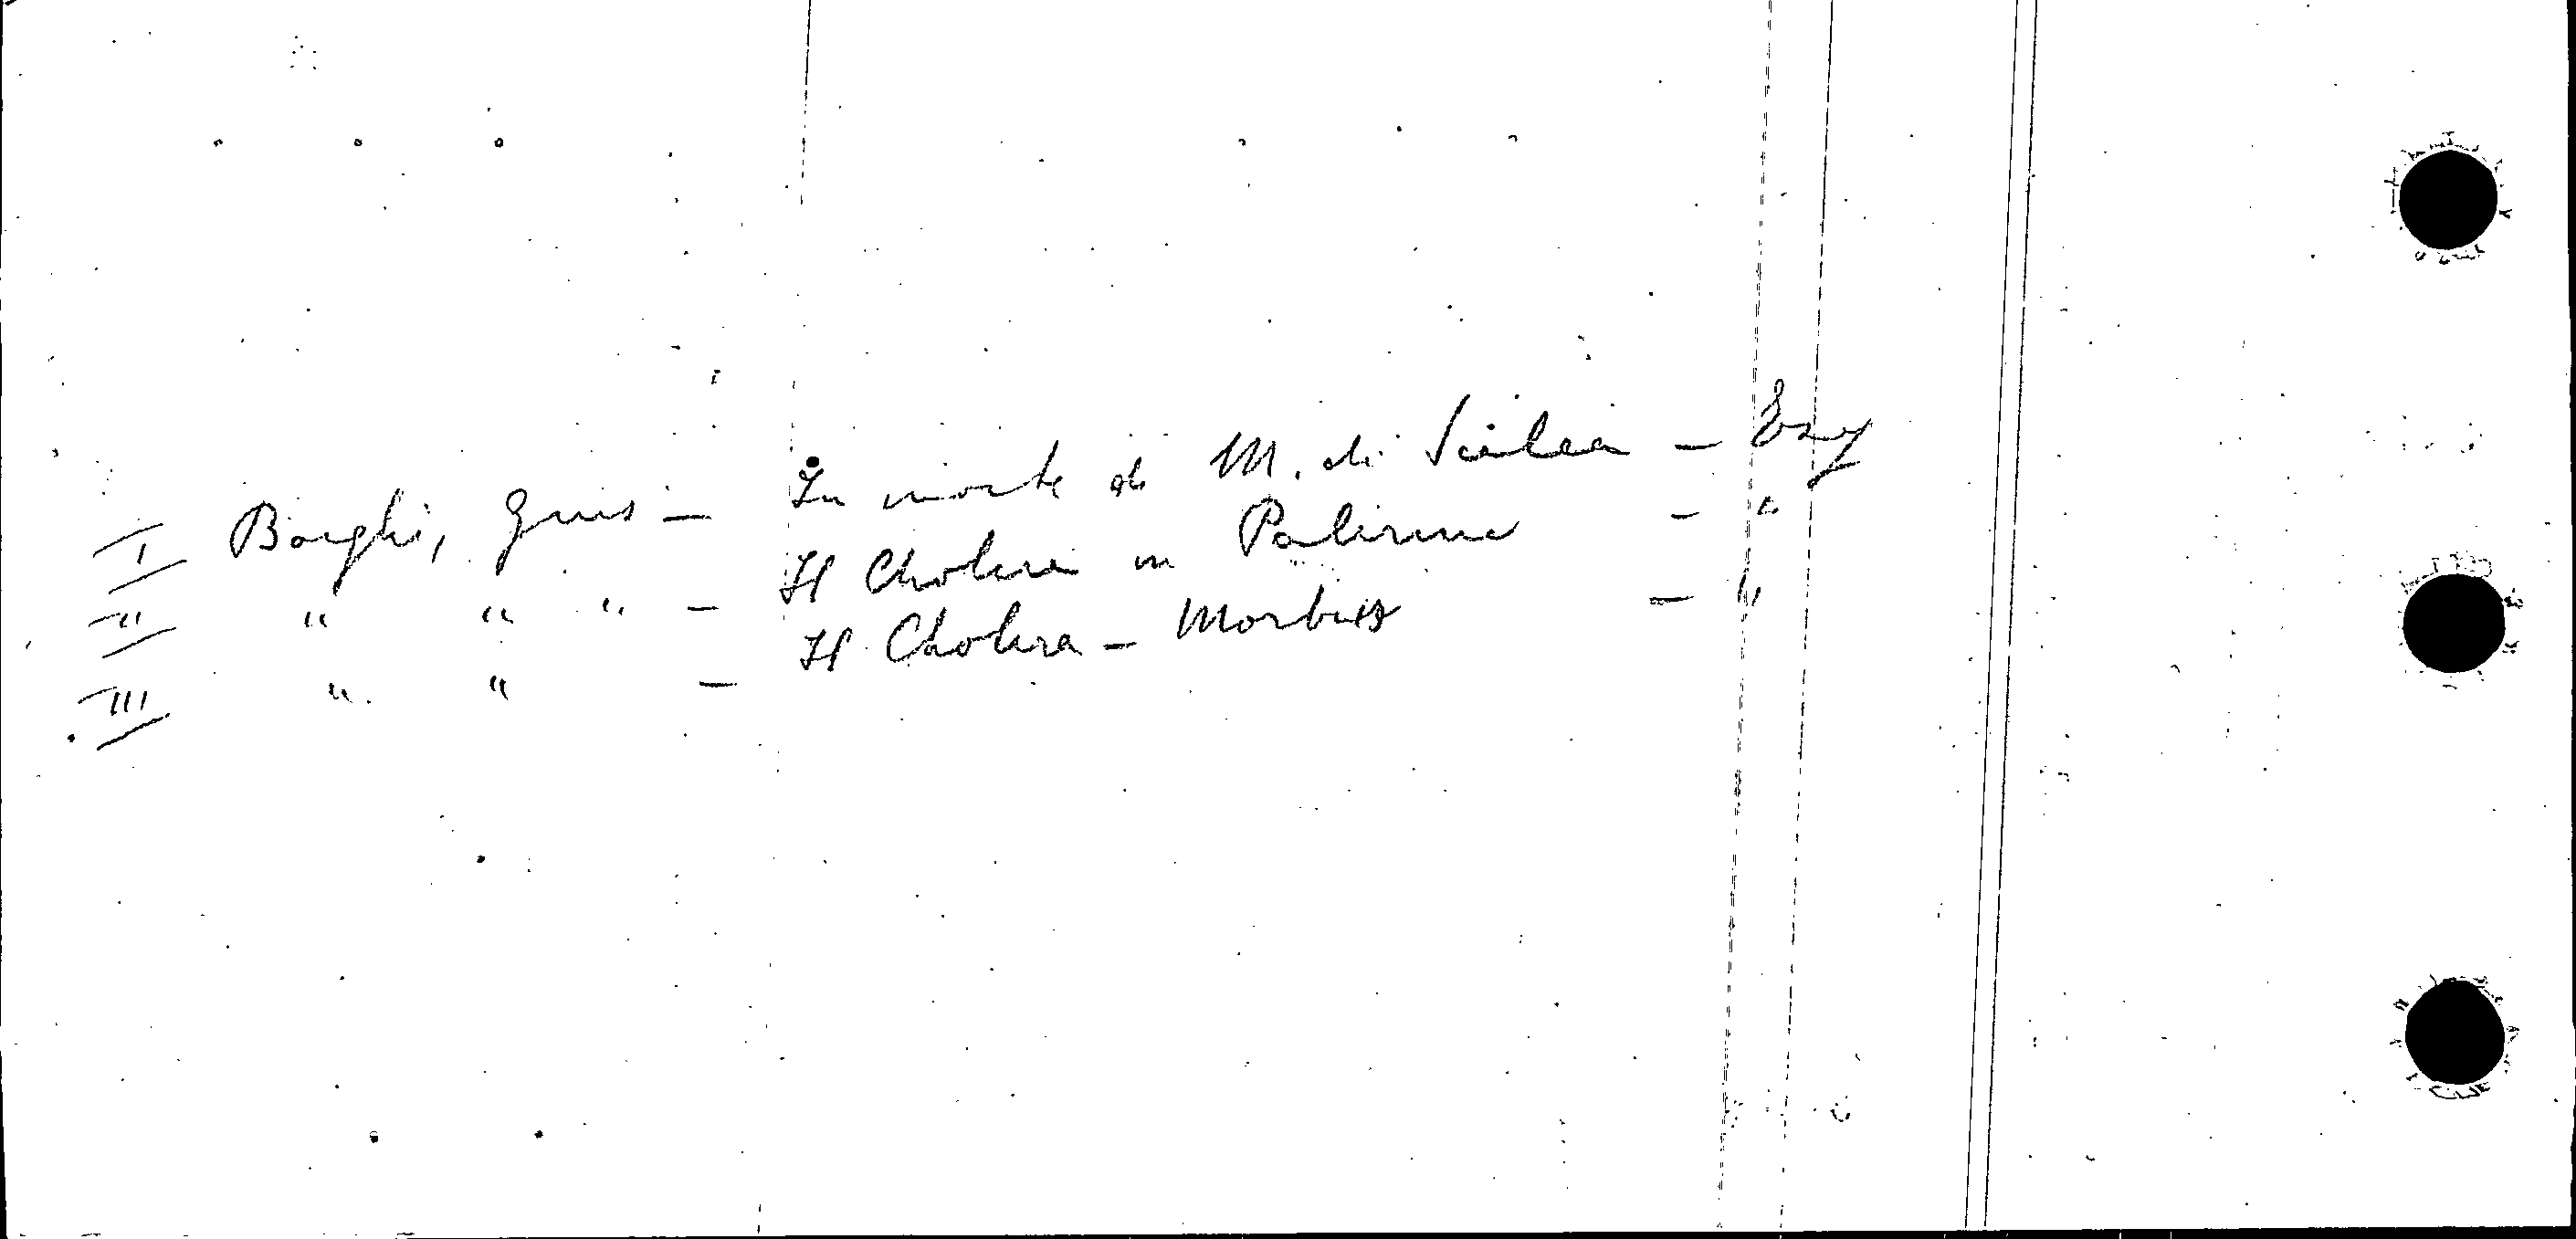 I Borghi, Gius — In morte di M. di Scilea — Esy
II " " " — Il Cholera in Palermo — "
III " " — Il Cholera - Morbus — "